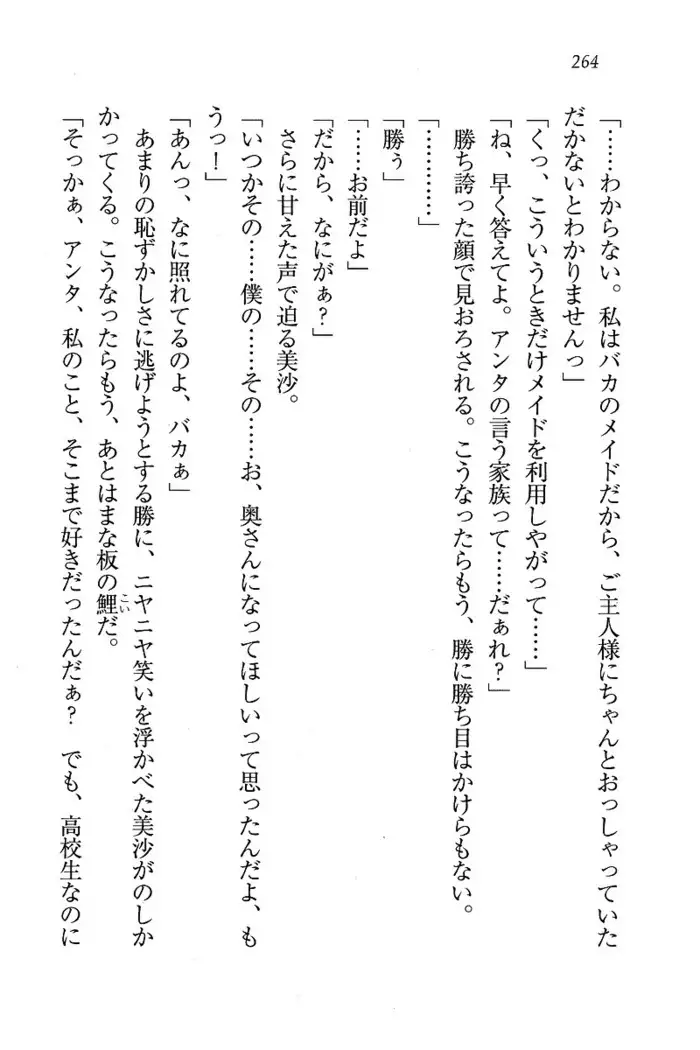 264
「……わからない。私はバカのメイドだから、ご主人様にちゃんとおっしゃっていた
だかないとわかりませんっ」
「くっ、こういうときだけメイドを利用しやがって……」
「ね、早く答えてよ。アンタの言う家族って……だぁれ？」
勝ち誇った顔で見おろされる。こうなったらもう、勝に勝ち目はかけらもない。
「…………」
「勝ぅ」
「……お前だよ」
「だから、なにがぁ？」
さらに甘えた声で迫る美沙。
「いつかその……僕の……その……お、奥さんになってほしいって思ったんだよ、も
うっ！」
「あんっ、なに照れてるのよ、バカぁ」
あまりの恥ずかしさに逃げようとする勝に、ニヤニヤ笑いを浮かべた美沙がのしか
かってくる。こうなったらもう、あとはまな板の鯉だ。
こい
「そっかぁ、アンタ、私のこと、そこまで好きだったんだぁ？　でも、高校生なのに